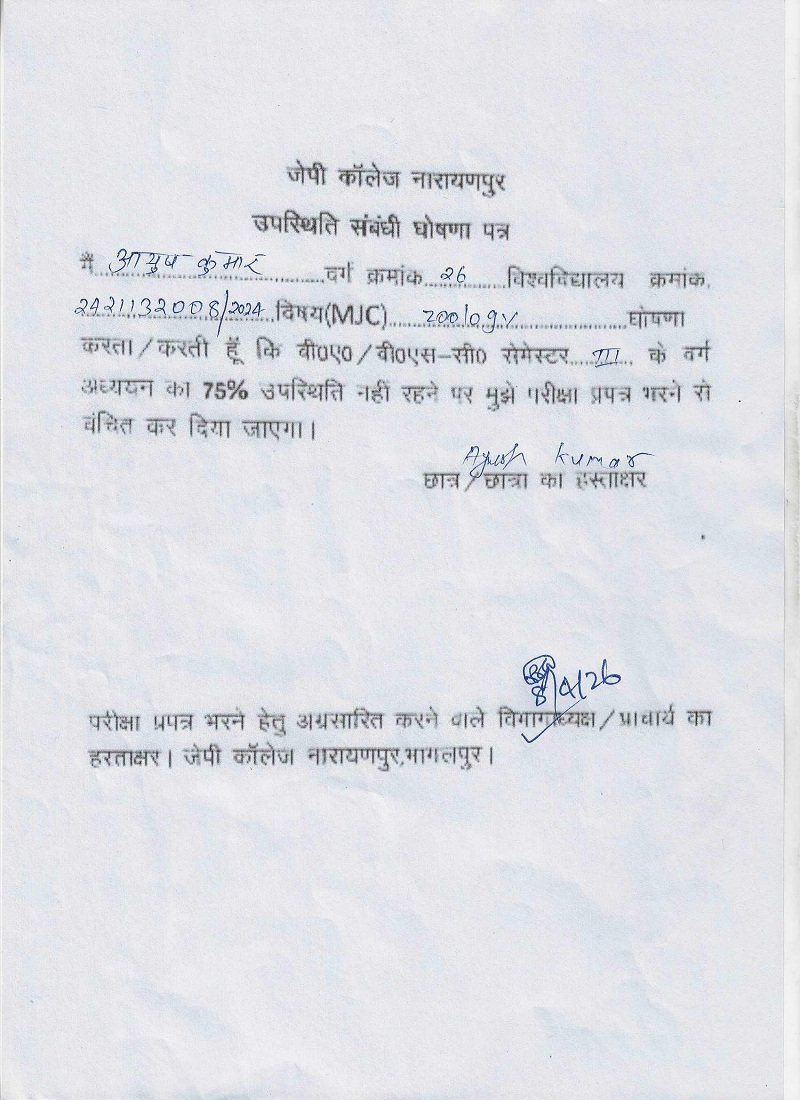 जेपी कॉलेज नारायणपुर
उपस्थिति संबंधी घोषणा पत्र
मैं आयुष कुमार वर्ग क्रमांक 26 विश्वविद्यालय क्रमांक.
2421132008/2024 विषय(MJC) zoology घोषणा
करता/करती हूँ कि बी0ए0/बी0एस-सी0 सेमेस्टर III के वर्ग
अध्ययन का 75% उपस्थिति नहीं रहने पर मुझे परीक्षा प्रपत्र भरने से
वंचित कर दिया जाएगा।
Ayush kumar
छात्र/छात्रा का हस्ताक्षर
8/4/26
परीक्षा प्रपत्र भरने हेतु अग्रसारित करने वाले विभागाध्यक्ष/प्राचार्य का
हस्ताक्षर। जेपी कॉलेज नारायणपुर,भागलपुर।